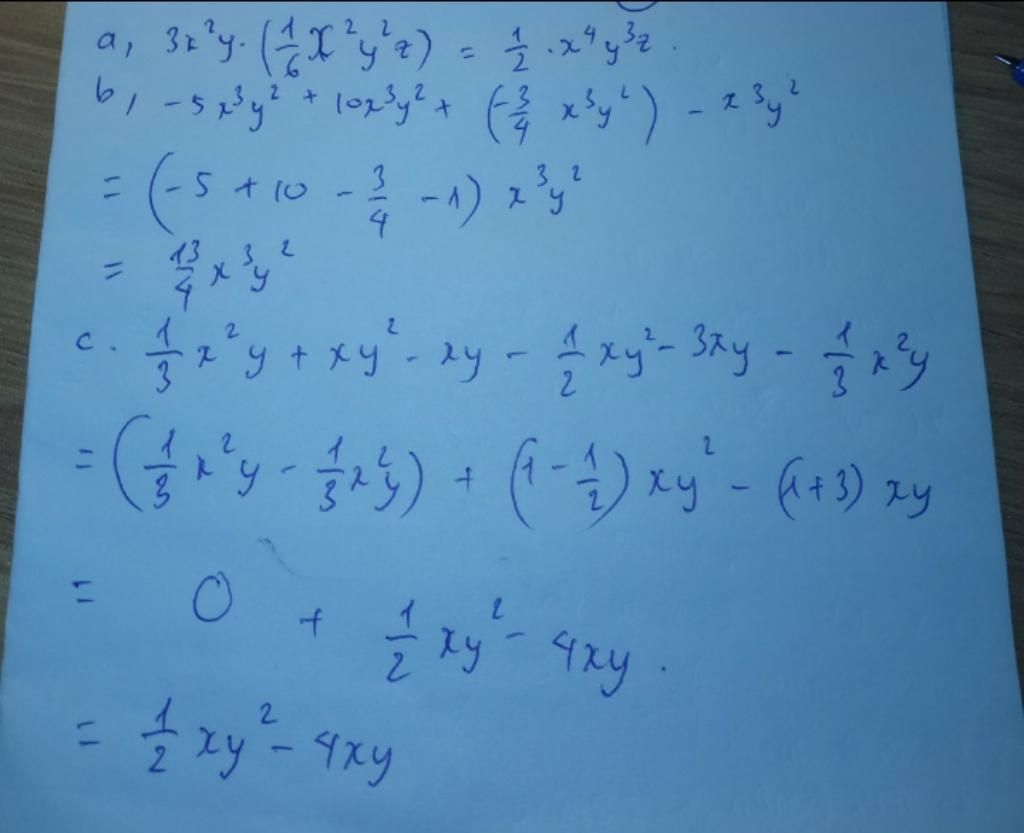 a, 3x²y · (1/6 x²y²z) = 1/2 · x⁴y³z .
b, -5x³y² + 10x³y² + (-3/4 x³y²) - x³y²
= (-5 + 10 - 3/4 - 1) x³y²
= 13/4 x³y²
c. 1/3 x²y + xy² - xy - 1/2 xy² - 3xy - 1/3 x²y
= (1/3 x²y - 1/3 x²y) + (1 - 1/2) xy² - (1+3) xy
= 0 + 1/2 xy² - 4xy .
= 1/2 xy² - 4xy